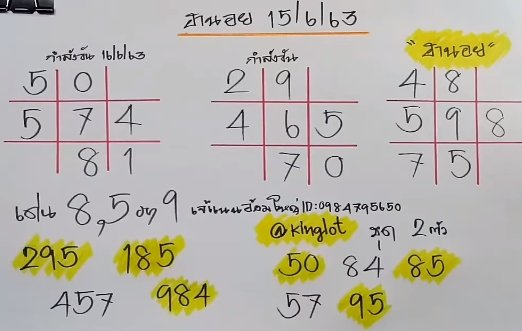 ฮานอย 15/6/63
กำลังวัน 16/6/63
กำลังวัน
"ฮานอย"
5 0
5 7 4
8 1
2 9
4 6 5
7 0
4 8
5 9 8
7 5
เด่น 8,5 รอง 9
ID:0984795650
@kinglot
ชุด 2 ตัว
295 185
457 984
50 84 85
57 95